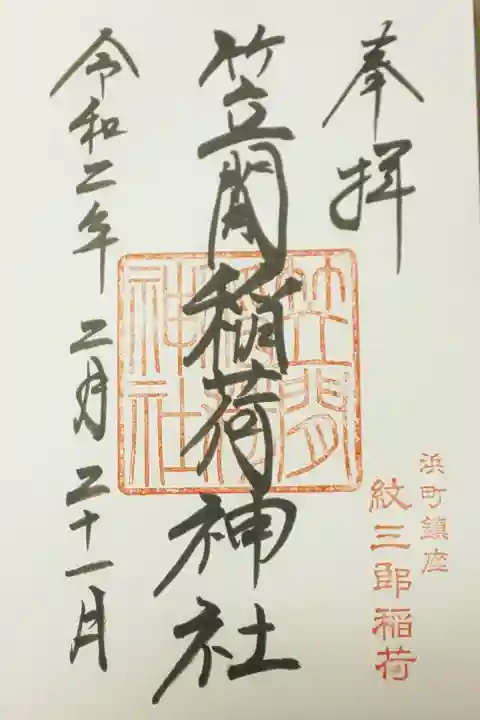 奉拝
笠間稲荷神社
令和二年 二月 二十一月
笠間稲荷神社
浜町鎮座
紋三郎稲荷